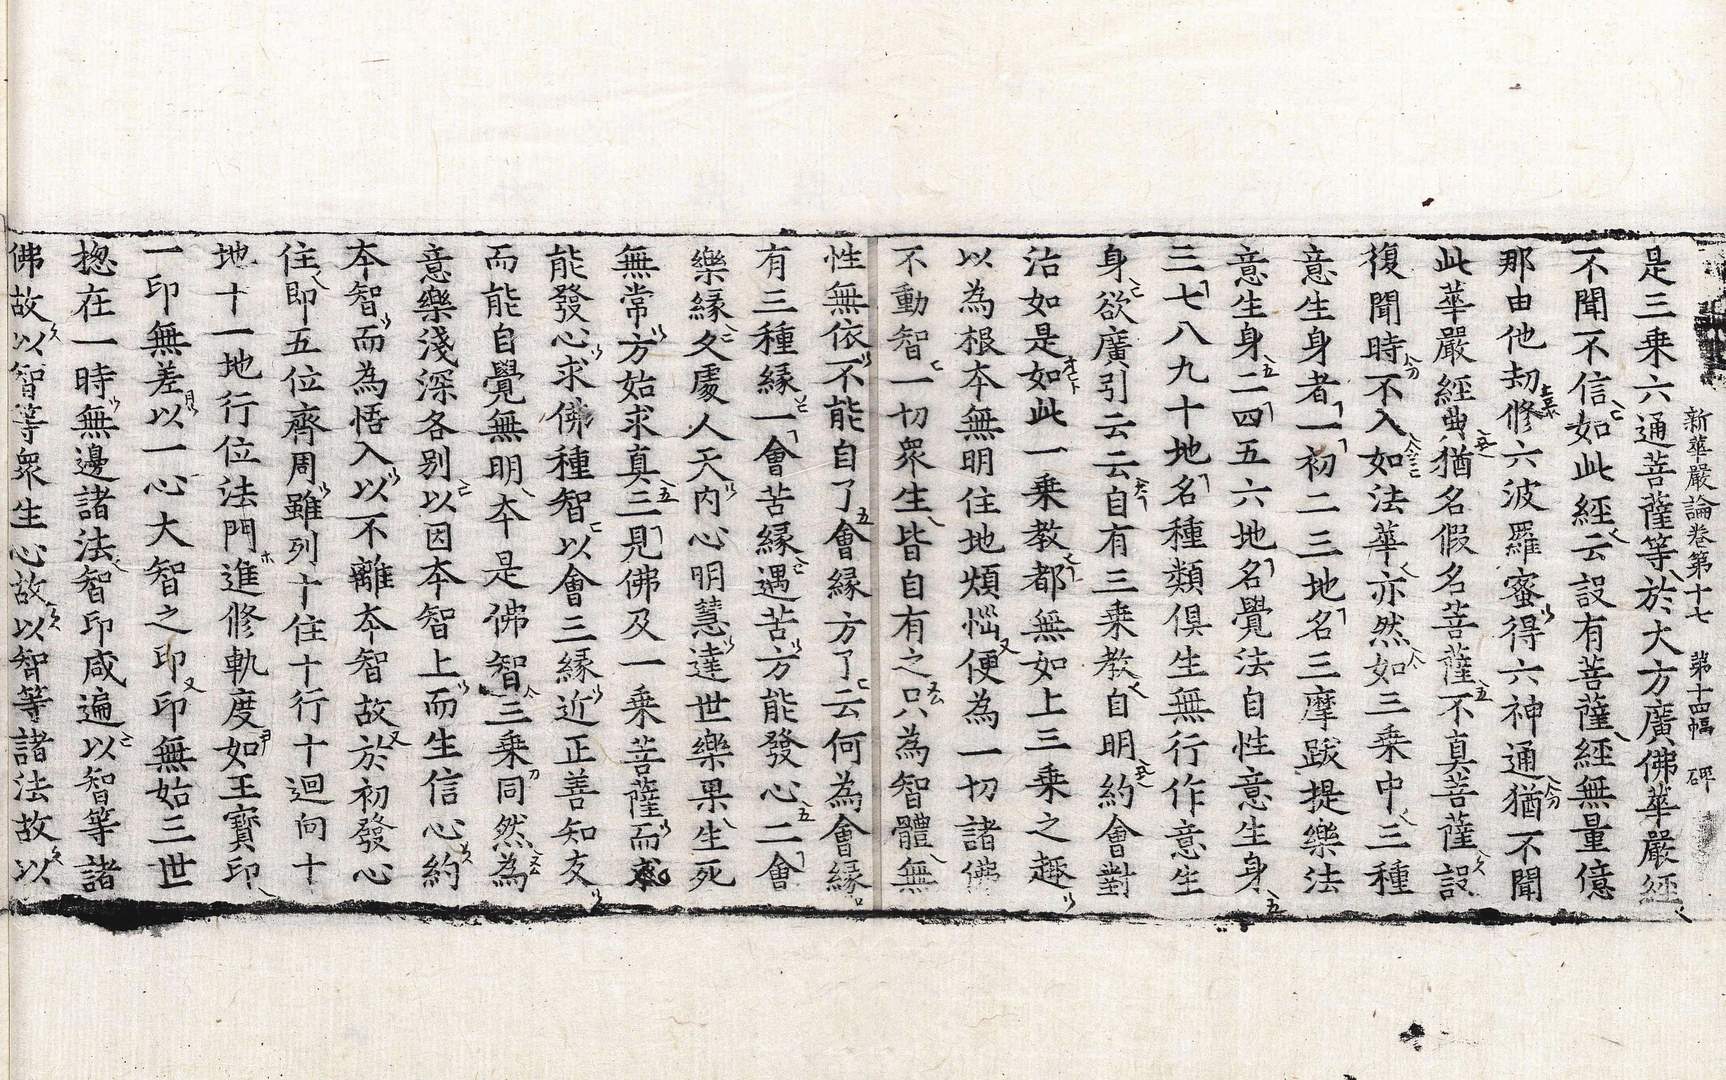 新華嚴論卷第十七　第十四幅　碑
是三乘六通菩薩等於大方廣佛華嚴經
不聞不信如此經云設有菩薩經無量億
那由他劫修六波羅蜜得六神通猶不聞
此華嚴經典猶名假名菩薩不真菩薩設
復聞時不入如法華亦然如三乘中三種
意生身者一初二三地名三摩跋提樂法
意生身二四五六地名覺法自性意生身
三七八九十地名種類俱生無行作意生
身欲廣引云云自有三乘教自明約會對
治如是如此一乘教都無如上三乘之趣
以為根本無明住地煩惱便為一切諸佛
不動智一切眾生皆自有之只為智體無
性無依不能自了會緣方了云何為會緣
有三種緣一會苦緣遇苦方能發心二會
樂緣久處人天內心明慧達世樂果生死
無常方始求真三見佛及一乘菩薩而求
能發心求佛種智以會三緣近正善知友
而能自覺無明本是佛智三乘同然為
意樂淺深各別以因本智上而生信心約
本智而為悟入以不離本智故於初發心
住即五位齊周雖列十住十行十迴向十
地十一地行位法門進修軌度如王寶印
一印無差以一心大智之印印無始三世
揔在一時無邊諸法智印咸遍以智等諸
佛故以智等眾生心故以智等諸法故以